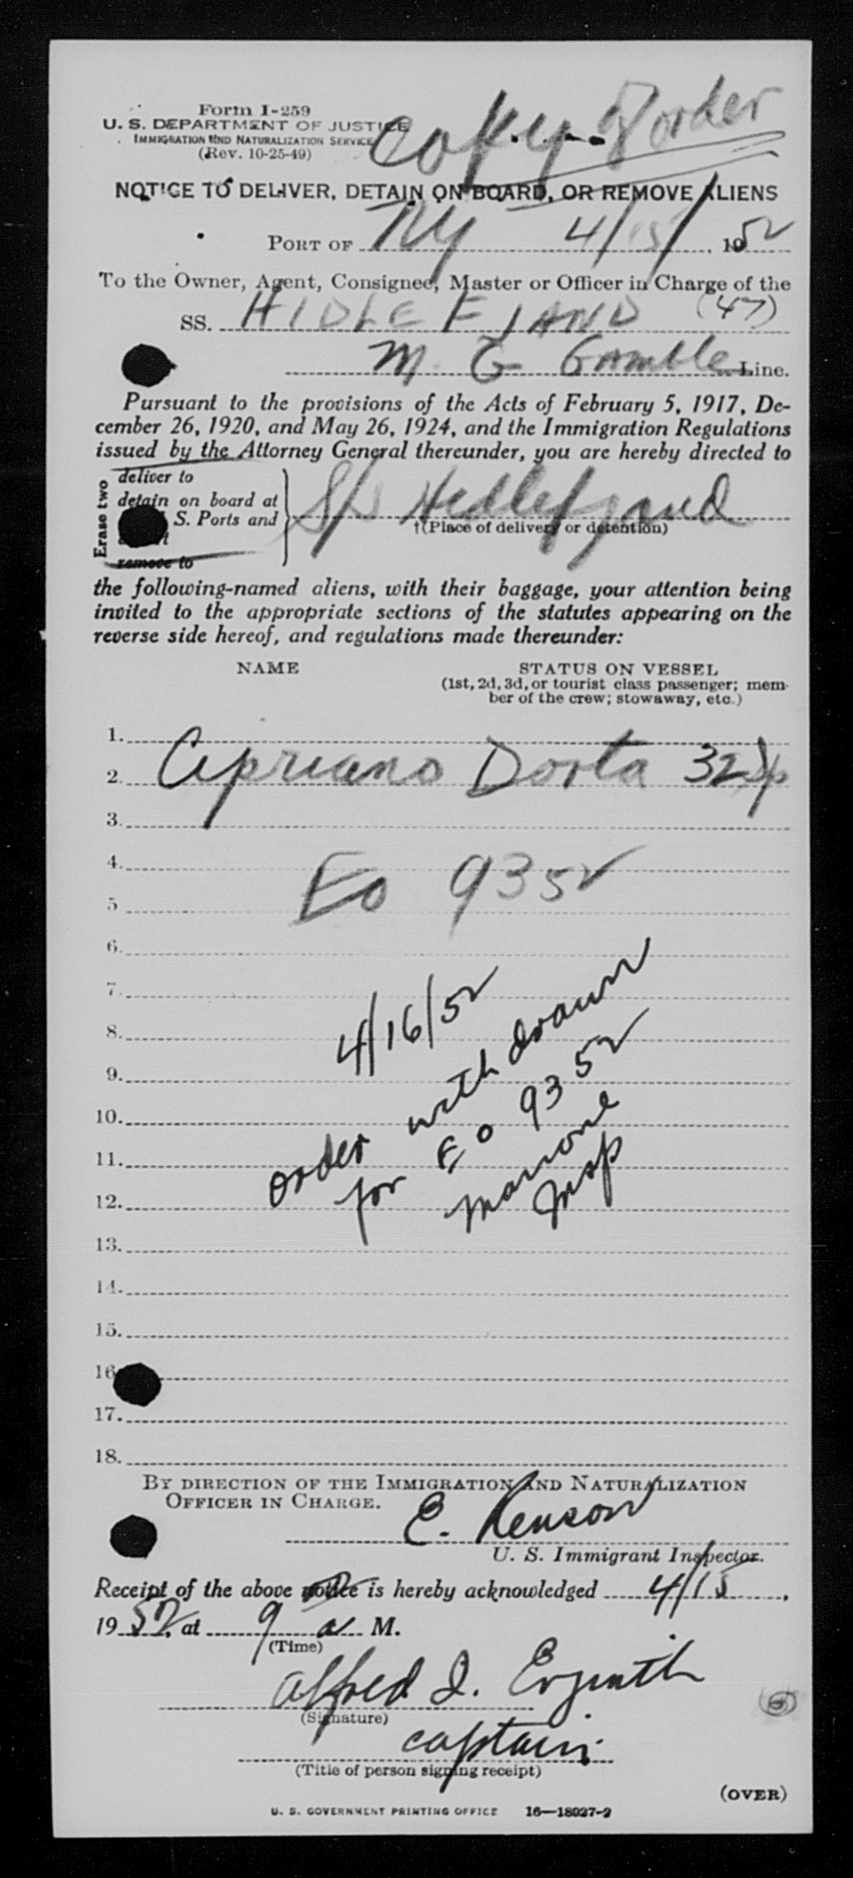 Form I-259
U. S. DEPARTMENT OF JUSTICE
IMMIGRATION AND NATURALIZATION SERVICE
(Rev. 10-25-49)
Copy of order
NOTICE TO DELIVER, DETAIN ON BOARD, OR REMOVE ALIENS
PORT OF NY 4/15/, 1952
To the Owner, Agent, Consignee, Master or Officer in Charge of the
SS. HIDLEFJAND (47)
M. G Gamble Line.
Pursuant to the provisions of the Acts of February 5, 1917, De-
cember 26, 1920, and May 26, 1924, and the Immigration Regulations
issued by the Attorney General thereunder, you are hereby directed to
Erase two
deliver to
detain on board at
S. Ports and
remove to
S/S Hedlefjand
†(Place of delivery or detention)
the following-named aliens, with their baggage, your attention being
invited to the appropriate sections of the statutes appearing on the
reverse side hereof, and regulations made thereunder:
NAME STATUS ON VESSEL
(1st, 2d, 3d, or tourist class passenger; mem-
ber of the crew; stowaway, etc.)
1.
2. Cipriano Dorta 32 Sp
3.
4.
EO 9352
5
6.
7.
4/16/52
8.
9.
10.
11.
12.
order withdrawn
for EO 9352
13.
14.
15.
16
17.
18.
BY DIRECTION OF THE IMMIGRATION AND NATURALIZATION
OFFICER IN CHARGE.
E. Kenson
U. S. Immigrant Inspector.
Receipt of the above notice is hereby acknowledged 4/15,
1952, at 9 a M.
(Time)
Alfred J.
(Signature)
captain
(Title of person signing receipt)
(OVER)
U. S. GOVERNMENT PRINTING OFFICE 16—18027-2